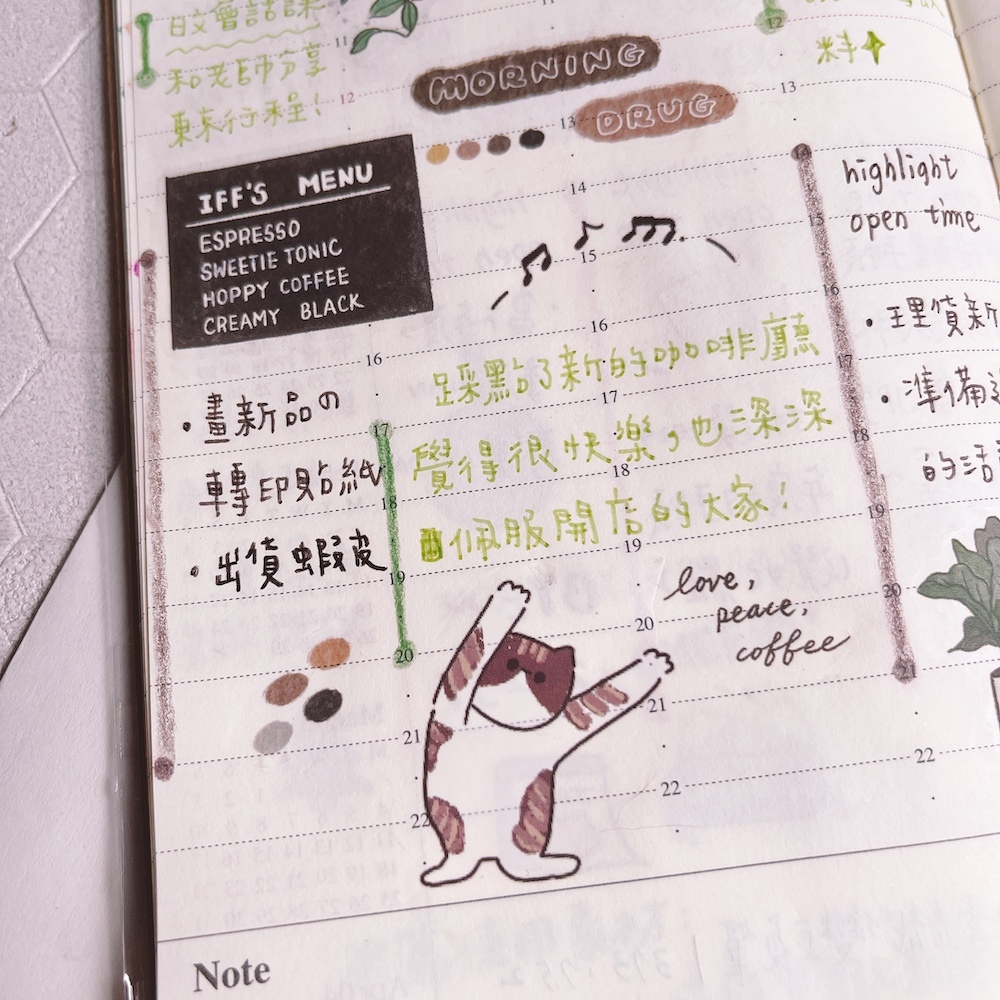 日文會話課
和老師分享
東京行程!
MORNING
DRUG
IFF'S MENU
ESPRESSO
SWEETIE TONIC
HOPPY COFFEE
CREAMY BLACK
・畫新品の
轉印貼紙
・出貨蝦皮
踩點了新的咖啡廳
覺得很快樂，也深深
佩服開店的大家!
love,
peace,
coffee
料
highlight
open time
・理貨新
・準備
的活
11
12
13
14
15
16
17
18
19
20
21
22
16
17
18
19
20
21
22
12
13
14
15
16
17
18
19
20
21
22
Note